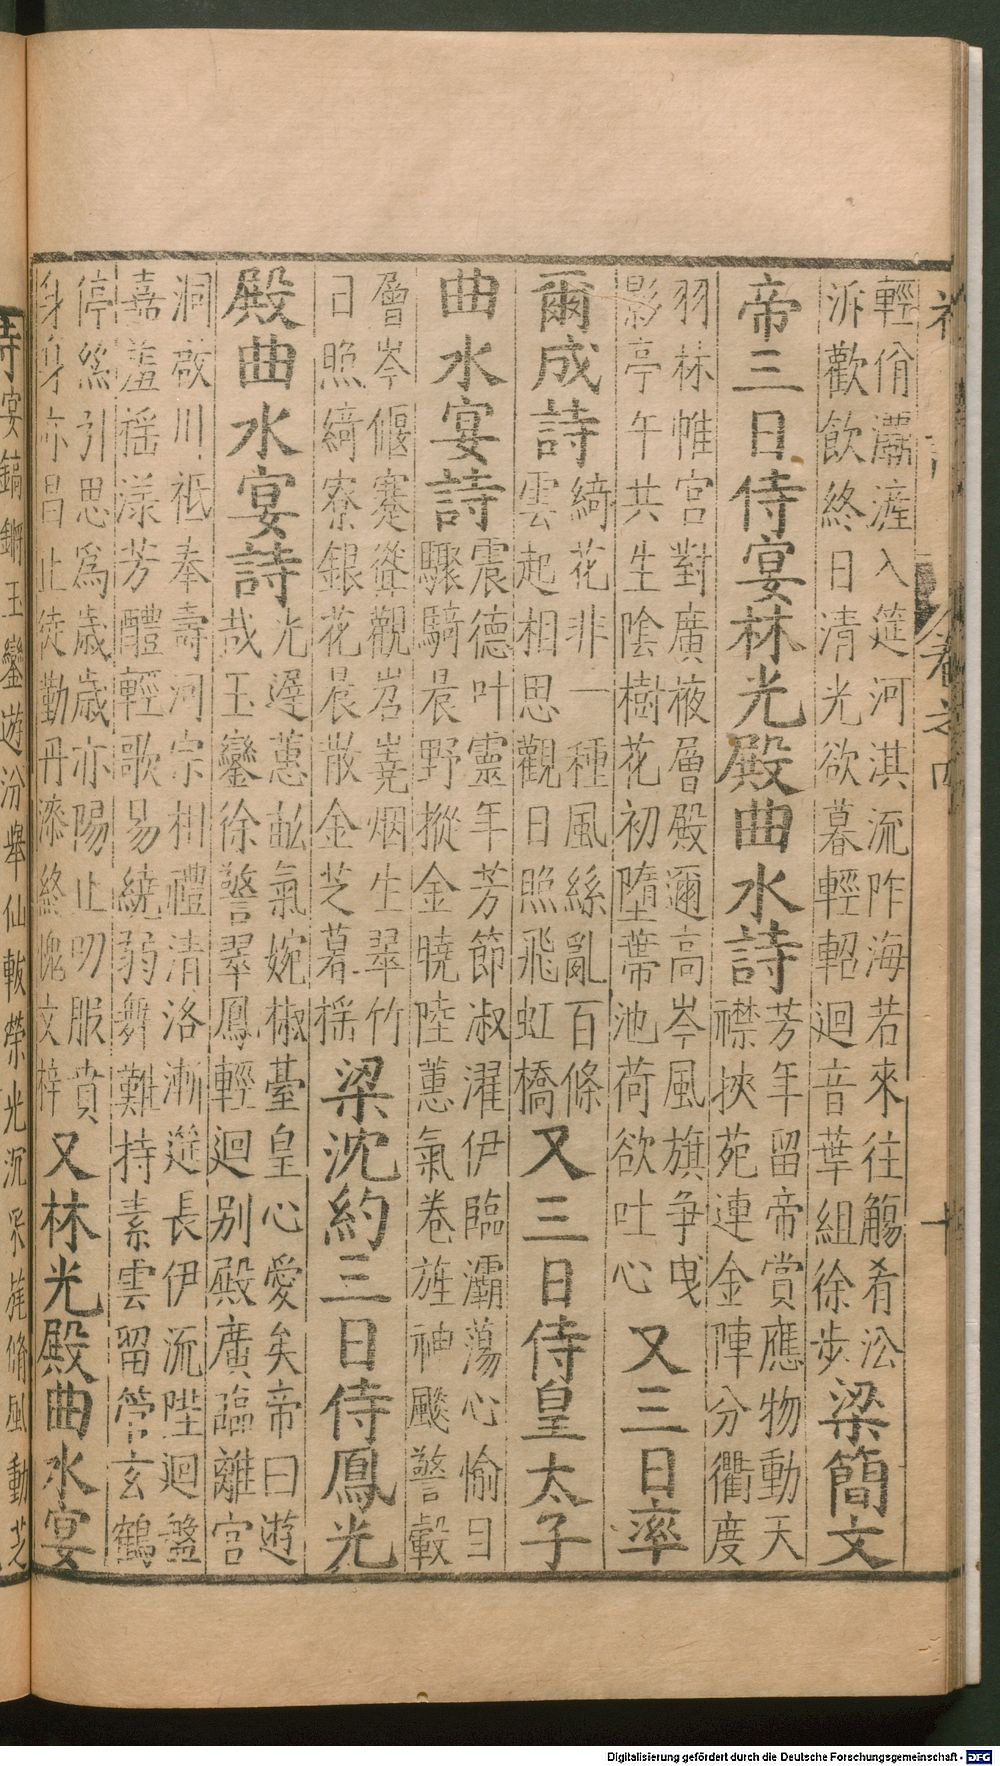 輕俏灞滻入筵河淇流阼海若來往觴肴㳂
泝歡飲終日清光欲暮輕軺迴音華組徐步
梁簡文
帝三日侍宴林光殿曲水詩
芳年留帝賞應物動天
襟挾苑連金陣分衢度
羽林帷宮對廣液層殿邇高岑風旗爭曳
影亭午共生陰樹花初墮蔕池荷欲吐心
又三日率
爾成詩
綺花非一種風絲亂百條
雲起相思觀日照飛虹橋
又三日侍皇太子
曲水宴詩
震德叶靈年芳節淑濯伊臨灞蕩心愉日
驟騎晨野摐金曉陸蕙氣卷旌神飈警轂
層岑偃蹇聳觀岧嶤烟生翠竹
日照綺寮銀花晨散金芝暮搖
梁沈約三日侍鳳光
殿曲水宴詩
光遲蕙畝氣婉椒臺皇心愛矣帝曰遊
哉玉鑾徐警翠鳳輕迴別殿廣臨離宮
洞啟川祗奉壽河宗相禮清洛漸筵長伊流陛迴盤
嘉羞搖漾芳醴輕歌易繞弱舞難持素雲留管玄鶴
停絲引思爲歲歲亦陽止叨服賁
身身亦昌止徒勤丹漆終愧文梓
又林光殿曲水宴
詩宴鎬鏘玉鑾遊汾舉仙軷榮光沉采旄脩風動芝
Digitalisierung gefördert durch die Deutsche Forschungsgemeinschaft - DFG